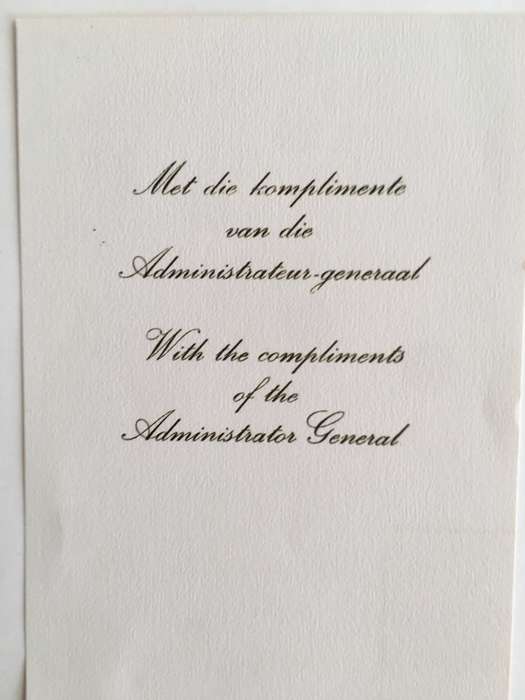 Met die komplimente
van die
Administrateur-generaal
With the compliments
of the
Administrator General